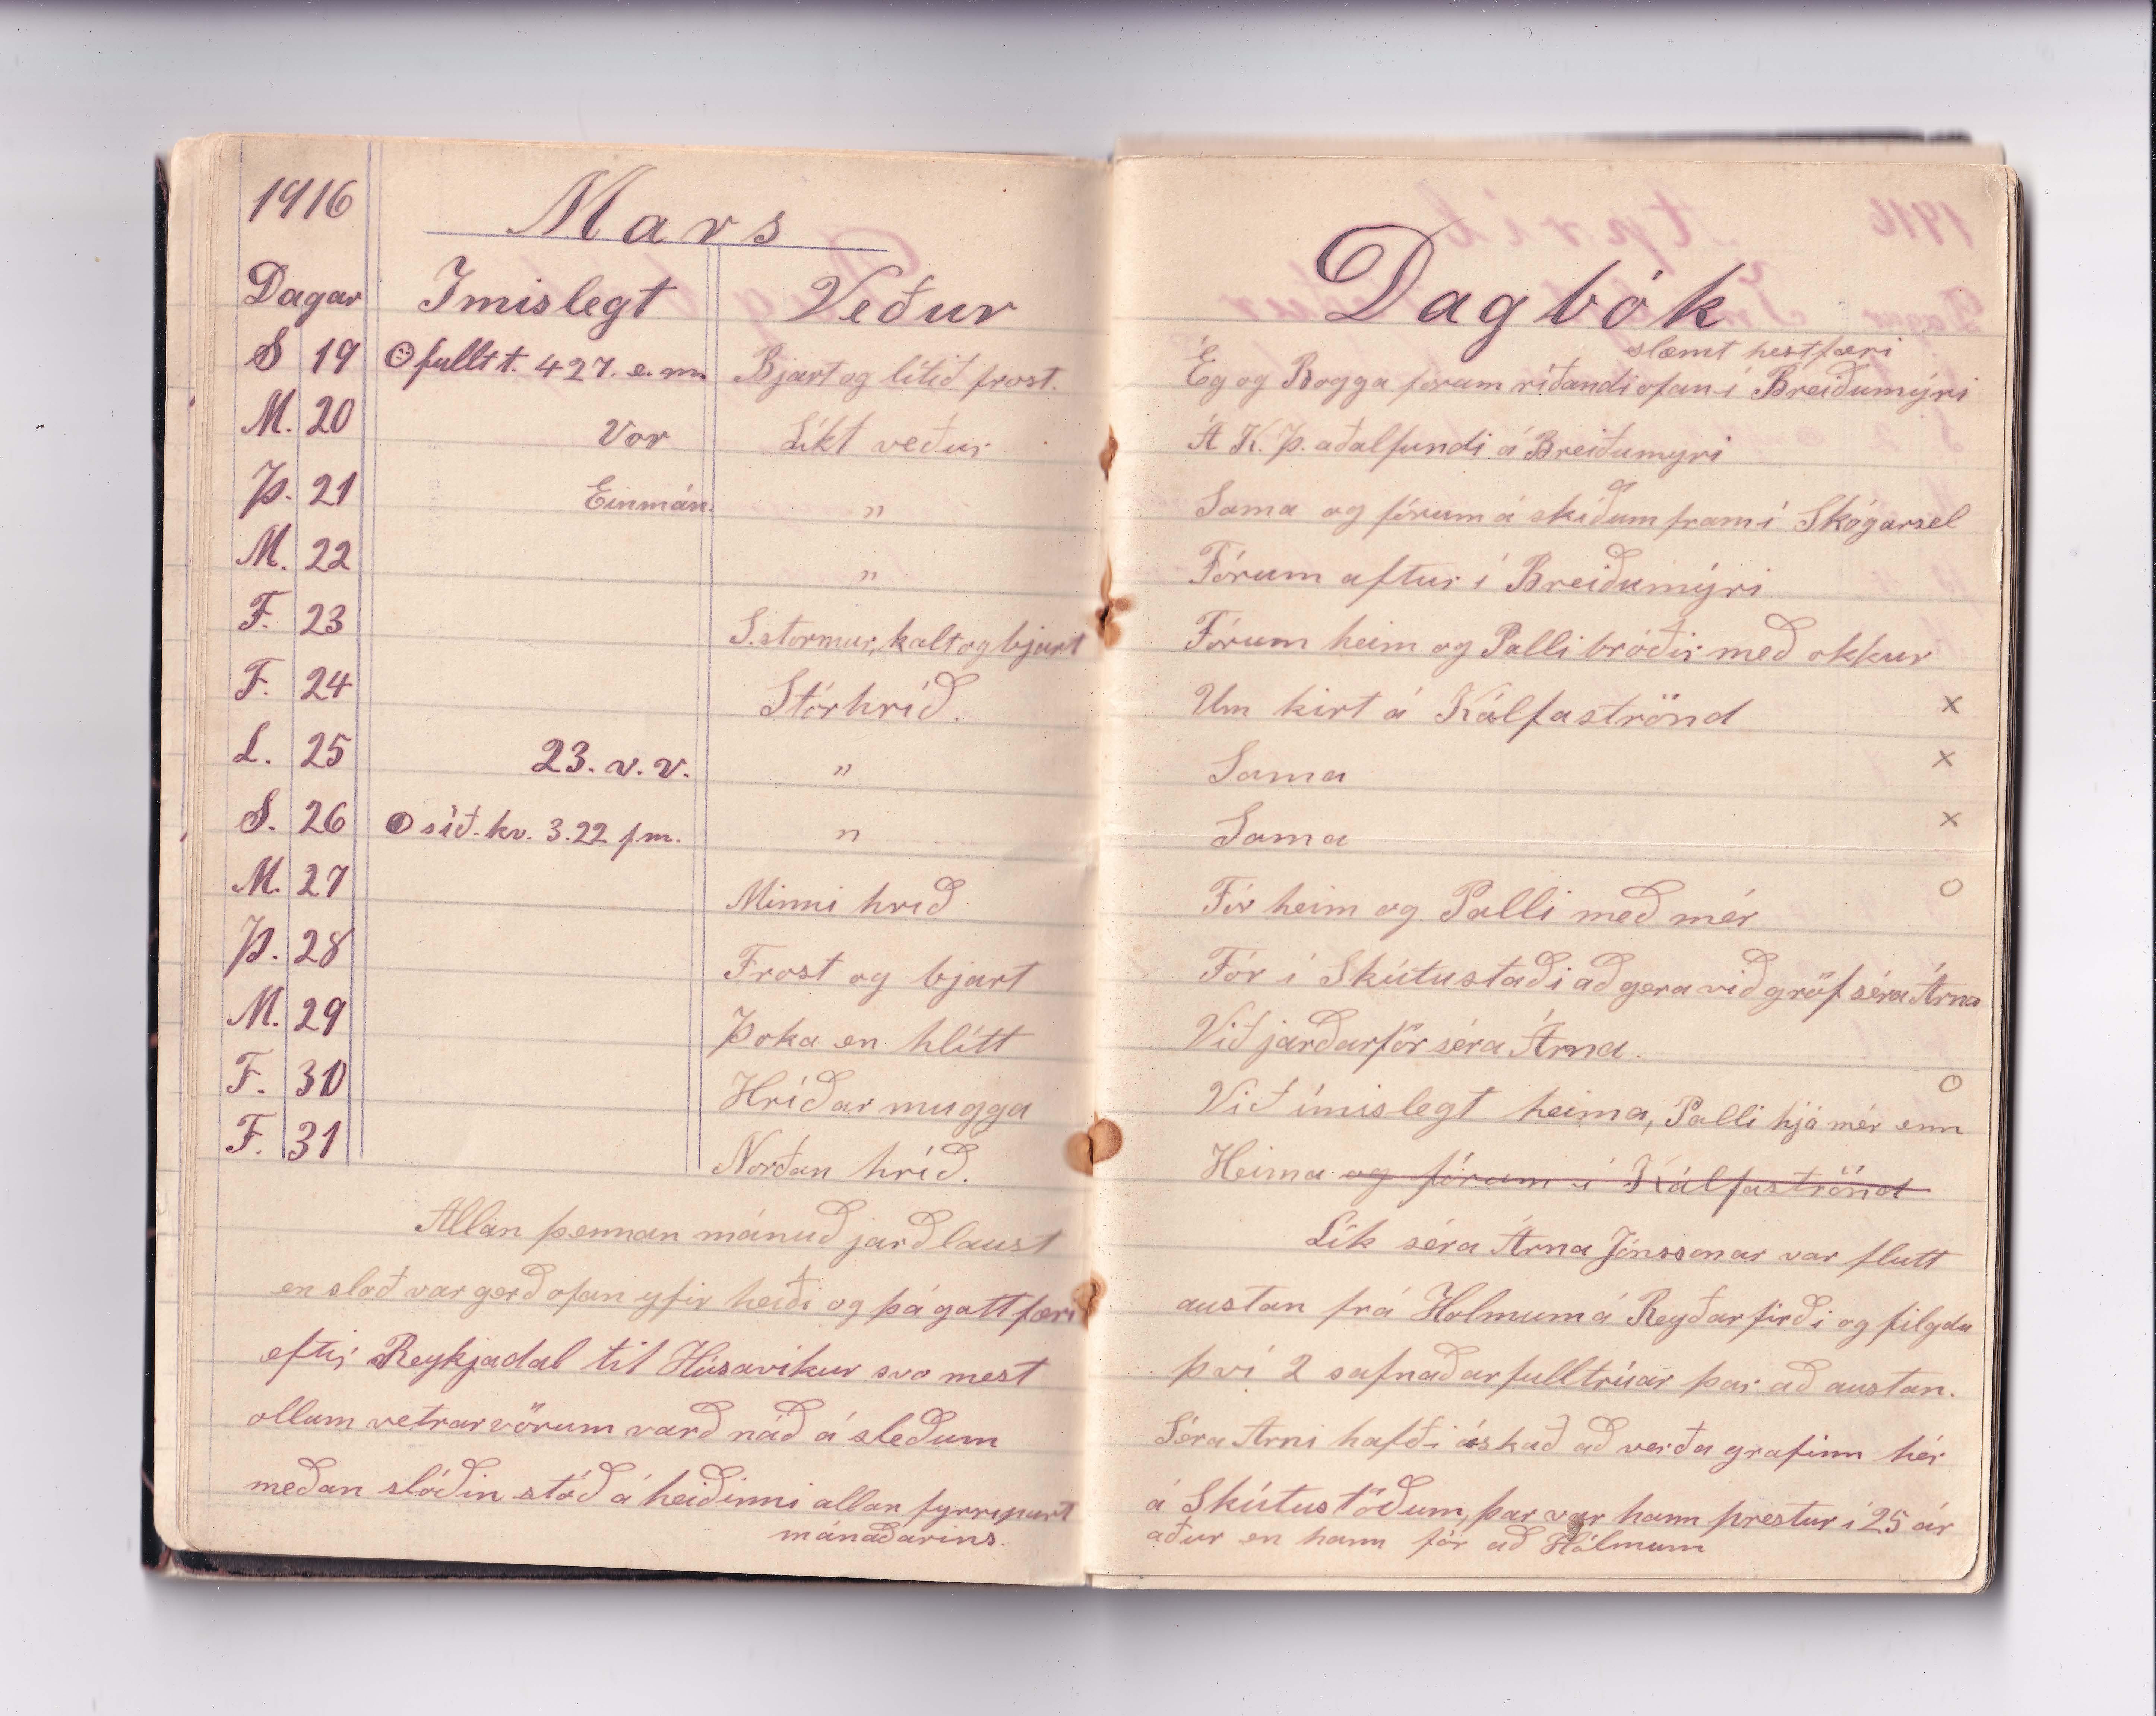 1916
Mars
Dagar Imislegt Veður
S 19 fullt t. 427. e.m. Bjart og lítið frost.
M. 20 Vor Líkt veður
Þ. 21 Einmán. "
M. 22 "
F. 23 S. stormur, kalt og bjart
F. 24 Stórhríð.
L. 25 23. v. v. "
S. 26 síð. kv. 3.22 f.m. "
M. 27 Minni hríð
Þ. 28 Frost og bjart
M. 29 Þoka en hlítt
F. 30 Hríðarmugga
F. 31 Norðan hríð.
Allan þennan mánuð jarðlaust
en slóð var gerð ofan yfir heiði og þá gott færi
eftir Reykjadal til Húsavíkur svo mest
ollum vetrarvörum varð náð á sleðum
meðan slóðin stóð á heiðinni allan fyrripart
mánaðarins.
Dagbók
slæmt hestfæri
Ég og Bogga forum ríðandi ofan í Breiðumýri
Á K. Þ. aðalfundi á Breiðumyri
Sama og fórum á skíðum fram í Skógarsel
Fórum aftur í Breiðumýri
Fórum heim og Palli bróðir með okkur
Um kirt á Kálfaströnd x
Sama x
Sama x
Fór heim og Palli með mér o
Fór í Skútustaði að gera við gröf séra Árna
Við jarðarför séra Árna.
Við ímislegt heima, Palli hjá mér enn o
Heima og fórum í Kálfaströnd
Lík séra Árna Jónssonar var flutt
austan frá Holmum á Reyðarfirði og filgdu
því 2 safnaðarfulltrúar þar að austan.
Séra Arni hafði óskað að verða grafinn hér
á Skútustöðum, þar var hann prestur í 25 ár
aður en hann fór að Hólmum